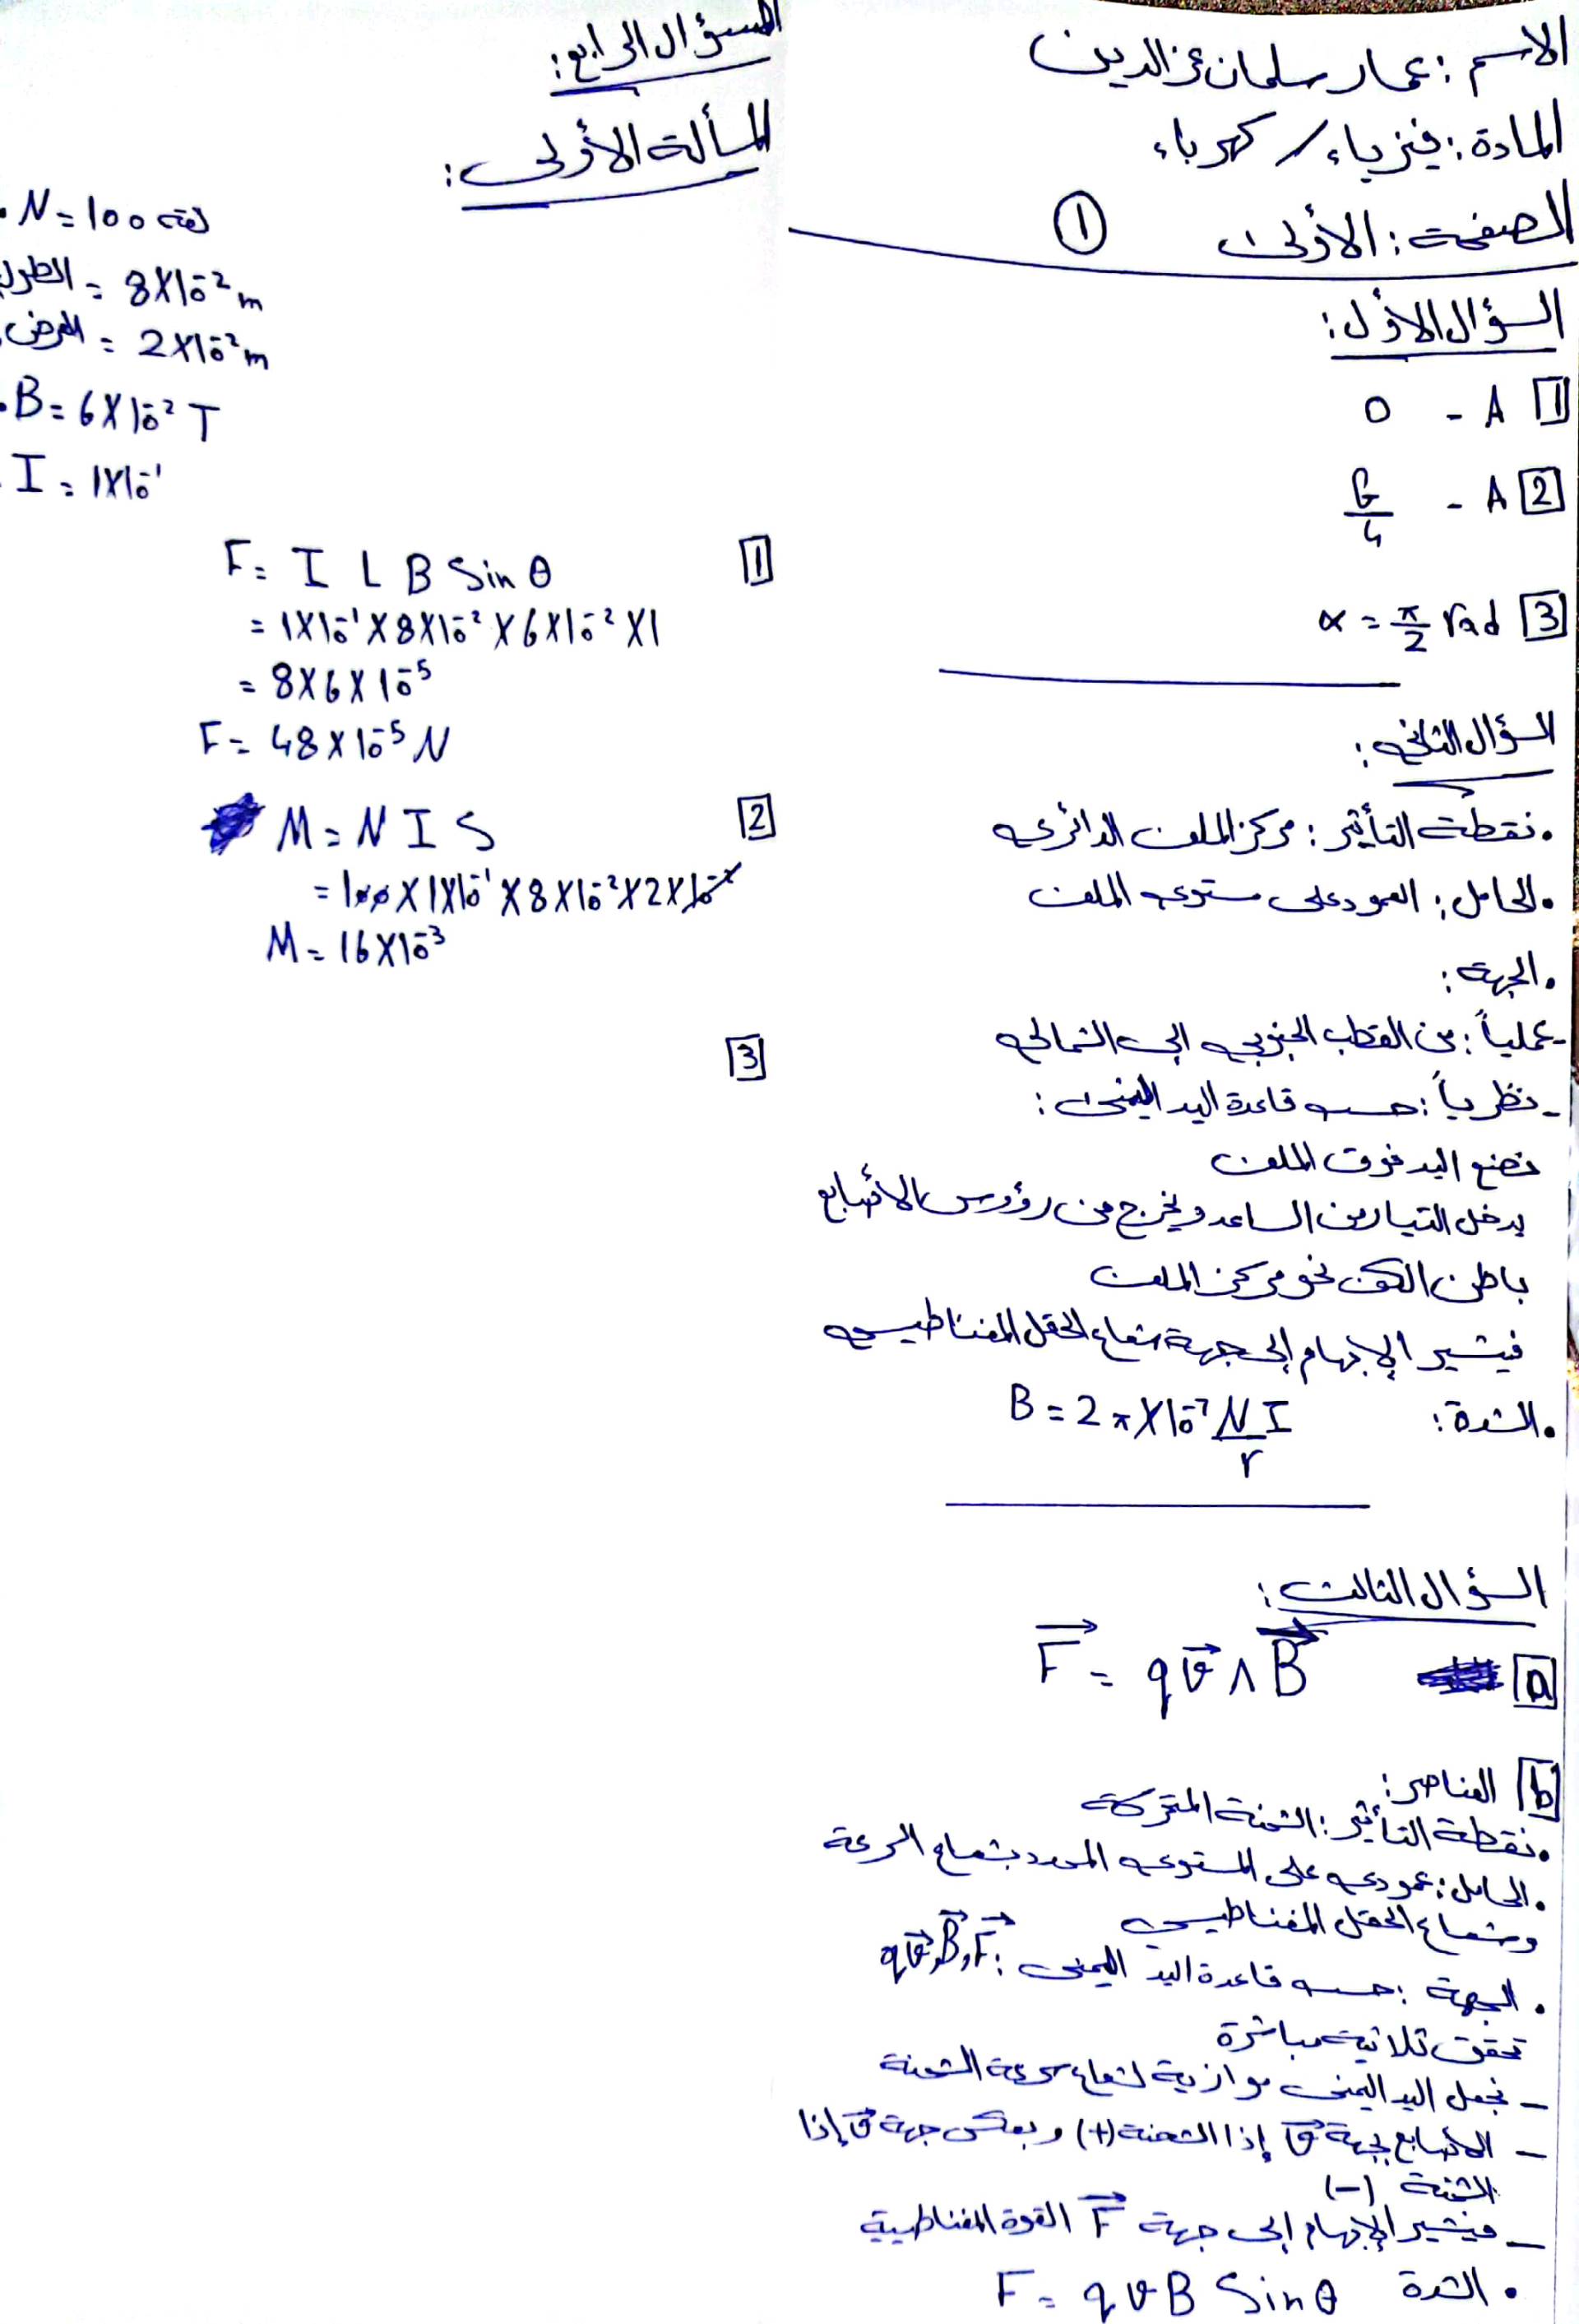 الاسم : عمار سلمان عز الدين
المادة : فيزياء / كهرباء
الصفحة : الأولى ①
السؤال الأول :
1 A - 0
2 A - G/4
3 α = π/2 rad
السؤال الثاني :
• نقطة التأثير : مركز الملف الدائري
• الحامل : العمود على مستوي الملف
• الجهة :
- عملياً : من القطب الجنوبي إلى الشمالي
- نظرياً : حسب قاعدة اليد اليمنى :
نضع اليد فوق الملف
يدخل التيار من الساعد ويخرج من رؤوس الأصابع
باطن الكف نحو مركز الملف
فيشير الإبهام إلى جهة شعاع الحقل المغناطيسي
• الشدة : B = 2π×10⁻⁷ NI/r
السؤال الثالث :
a F⃗ = qv⃗ ∧ B⃗
b العناصر :
• نقطة التأثير : الشحنة المتحركة
• الحامل : عمودي على المستوي المحدد بشعاع السرعة
وشعاع الحقل المغناطيسي
• الجهة : حسب قاعدة اليد اليمنى : qv⃗, B⃗, F⃗
تحقق ثلاثية مباشرة
- نجعل اليد اليمنى موازية لشعاع سرعة الشحنة
- الأصابع بجهة v⃗ إذا الشحنة (+) وبعكس جهة v⃗ إذا
الشحنة (-)
- فيشير الإبهام إلى جهة F⃗ القوة المغناطيسية
• الشدة F = qvB Sinθ
السؤال الرابع :
المسألة الأولى :
• N = 100 لفة
الطول = 8×10⁻² m
العرض = 2×10⁻² m
• B = 6×10⁻² T
• I = 1×10⁻¹
1 F = I L B Sin θ
= 1×10⁻¹ × 8×10⁻² × 6×10⁻² × 1
= 8×6×10⁻⁵
F = 48×10⁻⁵ N
2 M = N I S
= 100 × 1×10⁻¹ × 8×10⁻² × 2×10⁻²
M = 16×10⁻³
3